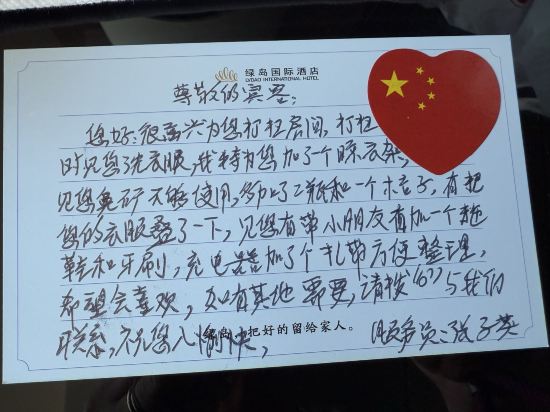 绿岛国际酒店
LVDAO INTERNATIONAL HOTEL
尊敬的宾客:
您好:很高兴为您打扫房间,打扫
时见您洗衣服,我特为您加了个晾衣架,
见您矿不够使用,多加了2瓶和一个杯子,有把
您的衣服叠了一下,见您有带小朋友有加一个拖
鞋和牙刷,充电器加了个扎带方便整理,
希望会喜欢,如有其他需要,请拨“67”与我们
联系,祝您入愉快,
绿岛,把好的留给家人。
服务员:张子英